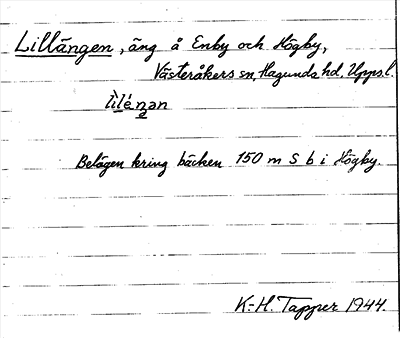 Lillängen, äng å Enby och Högby,
Västeråkers sn, Hagunda hd. Upps.l.
Belägen kring bäcken 150 m S b i Högby.
K.-H. Tapper 1944.